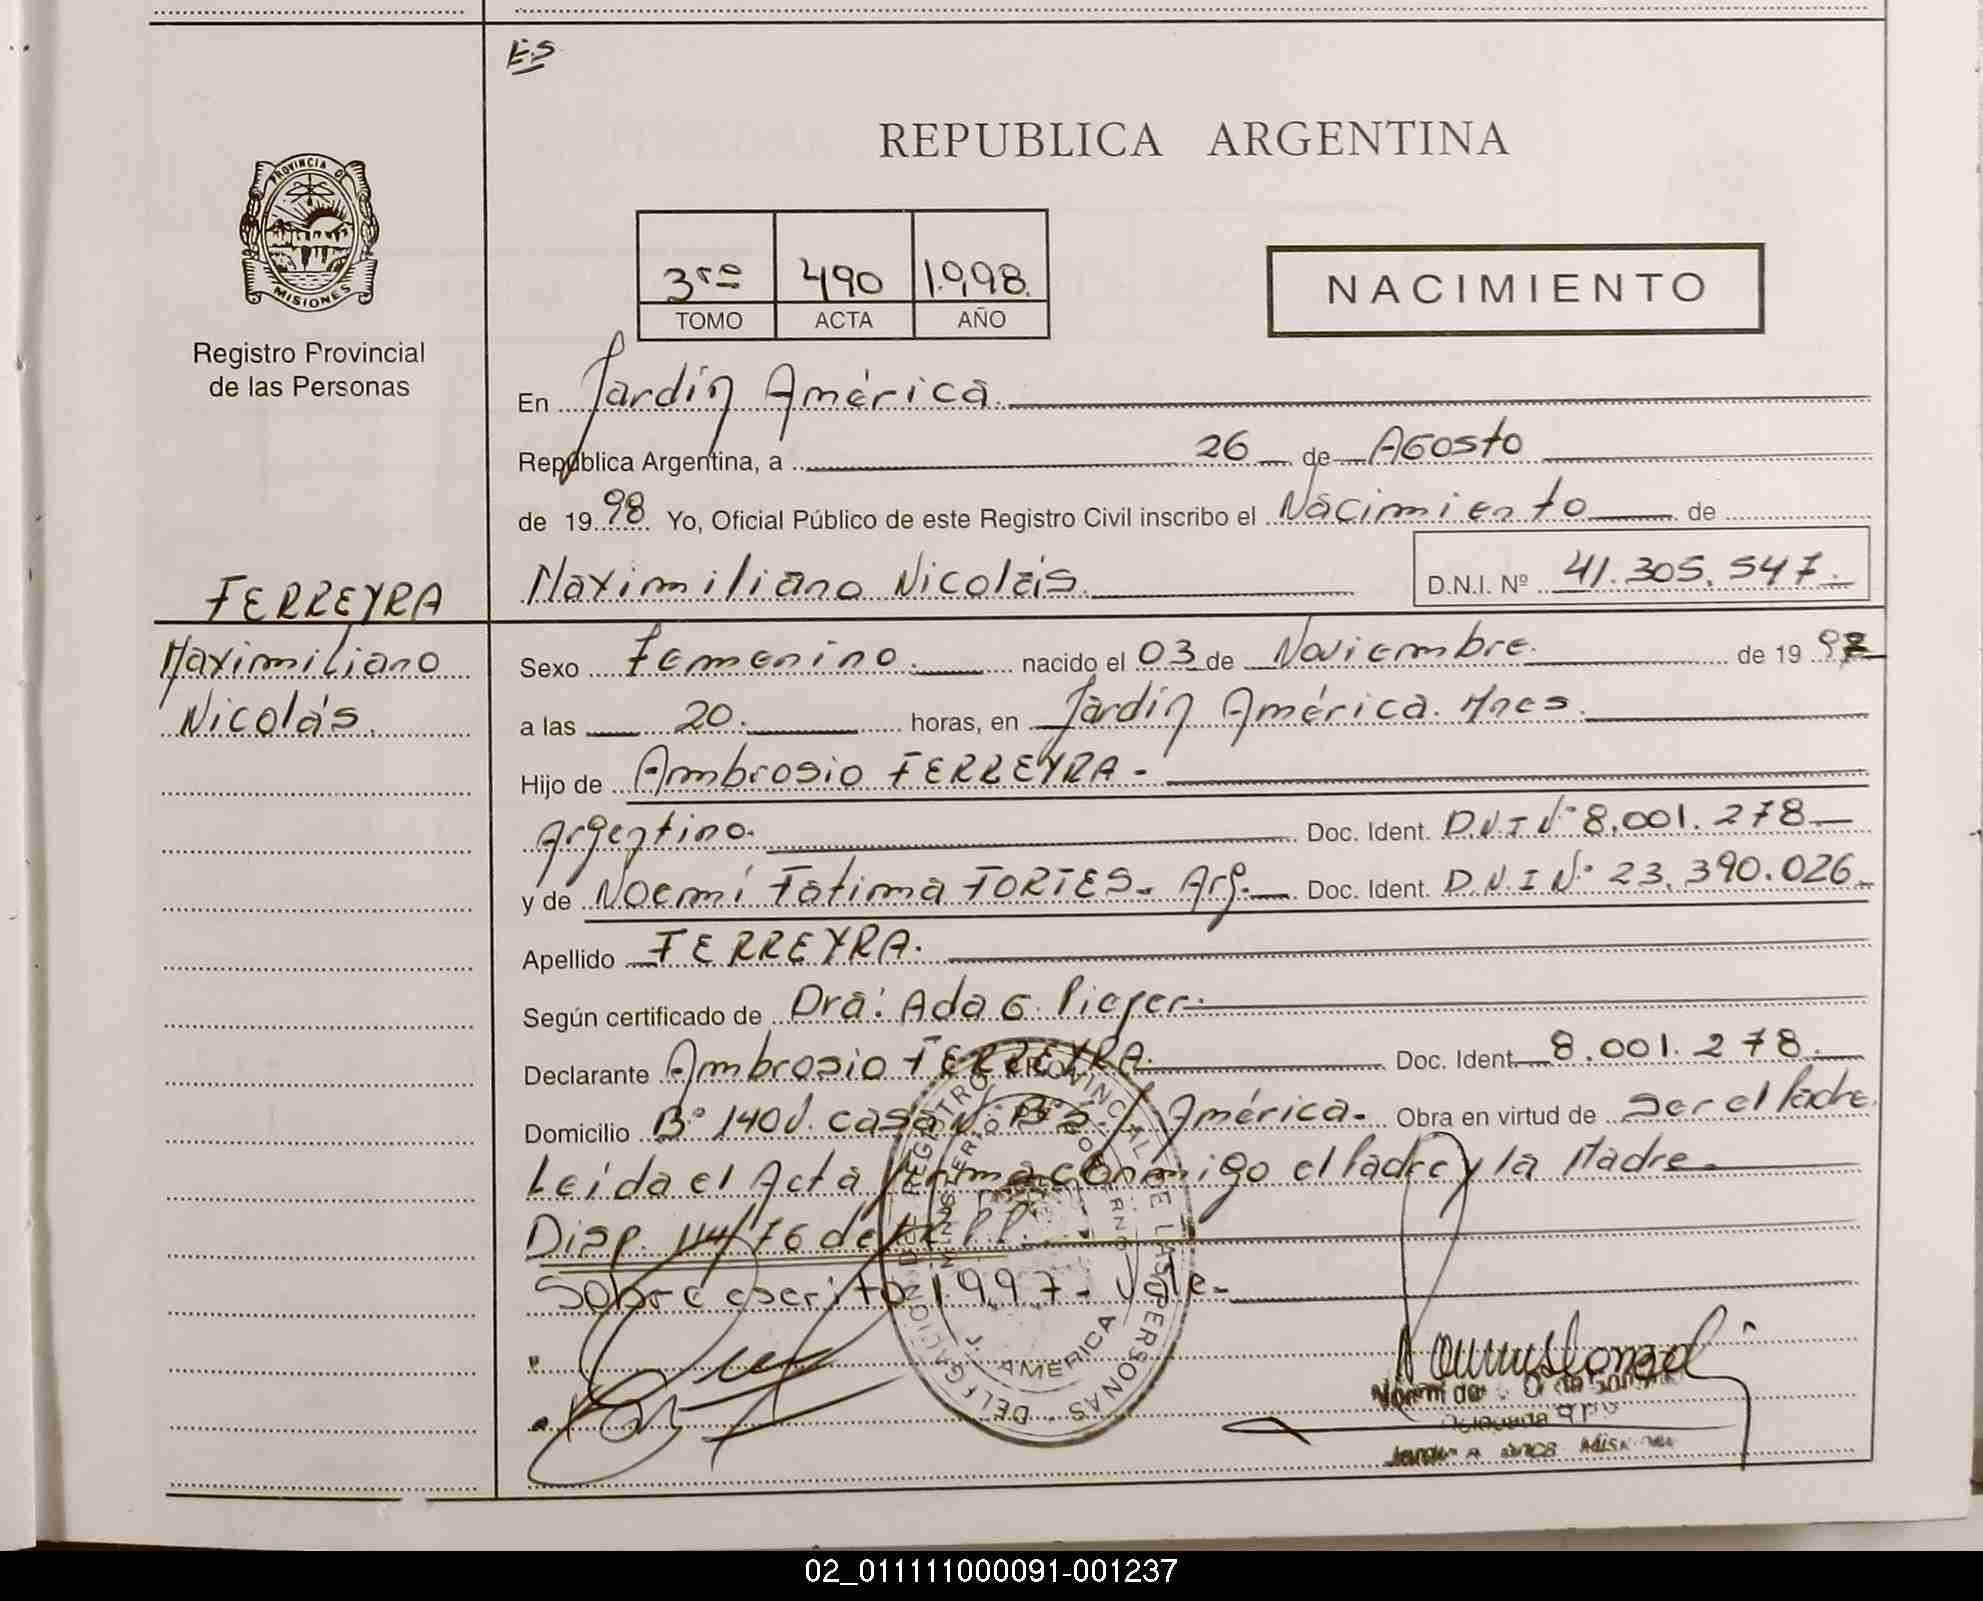 ES
REPUBLICA ARGENTINA
PROVINCIA DE
MISIONES
Registro Provincial
de las Personas
3ro 490 1.998.
TOMO ACTA AÑO
NACIMIENTO
En Jardín América.
República Argentina, a 26 de Agosto
de 1998 Yo, Oficial Público de este Registro Civil inscribo el Nacimiento de
Maximiliano Nicolás. D.N.I. Nº 41.305.547.
FERREYRA
Maximiliano
Nicolás.
Sexo Femenino. nacido el 03 de Noviembre. de 1997
a las 20. horas, en Jardín América. Mnes.
Hijo de Ambrosio FERREYRA.-
Argentino. Doc. Ident. D.N.I Nº 8.001.278
y de Noemí Fátima TORTES. Arg. Doc. Ident. D.N.I Nº 23.390.026
Apellido FERREYRA.
Según certificado de Dra: Ada G.
Declarante Ambrosio FERREYRA. Doc. Ident. 8.001.278.
Domicilio Bº 140 V. casa América. Obra en virtud de Ser el Padre
Leída el Acta firma conmigo el Padre y la Madre.
Disp. 114/76 de
Sobre escrito 1997. Vale.
REGISTRO PROVINCIAL DE LAS PERSONAS - DELEGACION
J. AMERICA
02_011111000091-001237